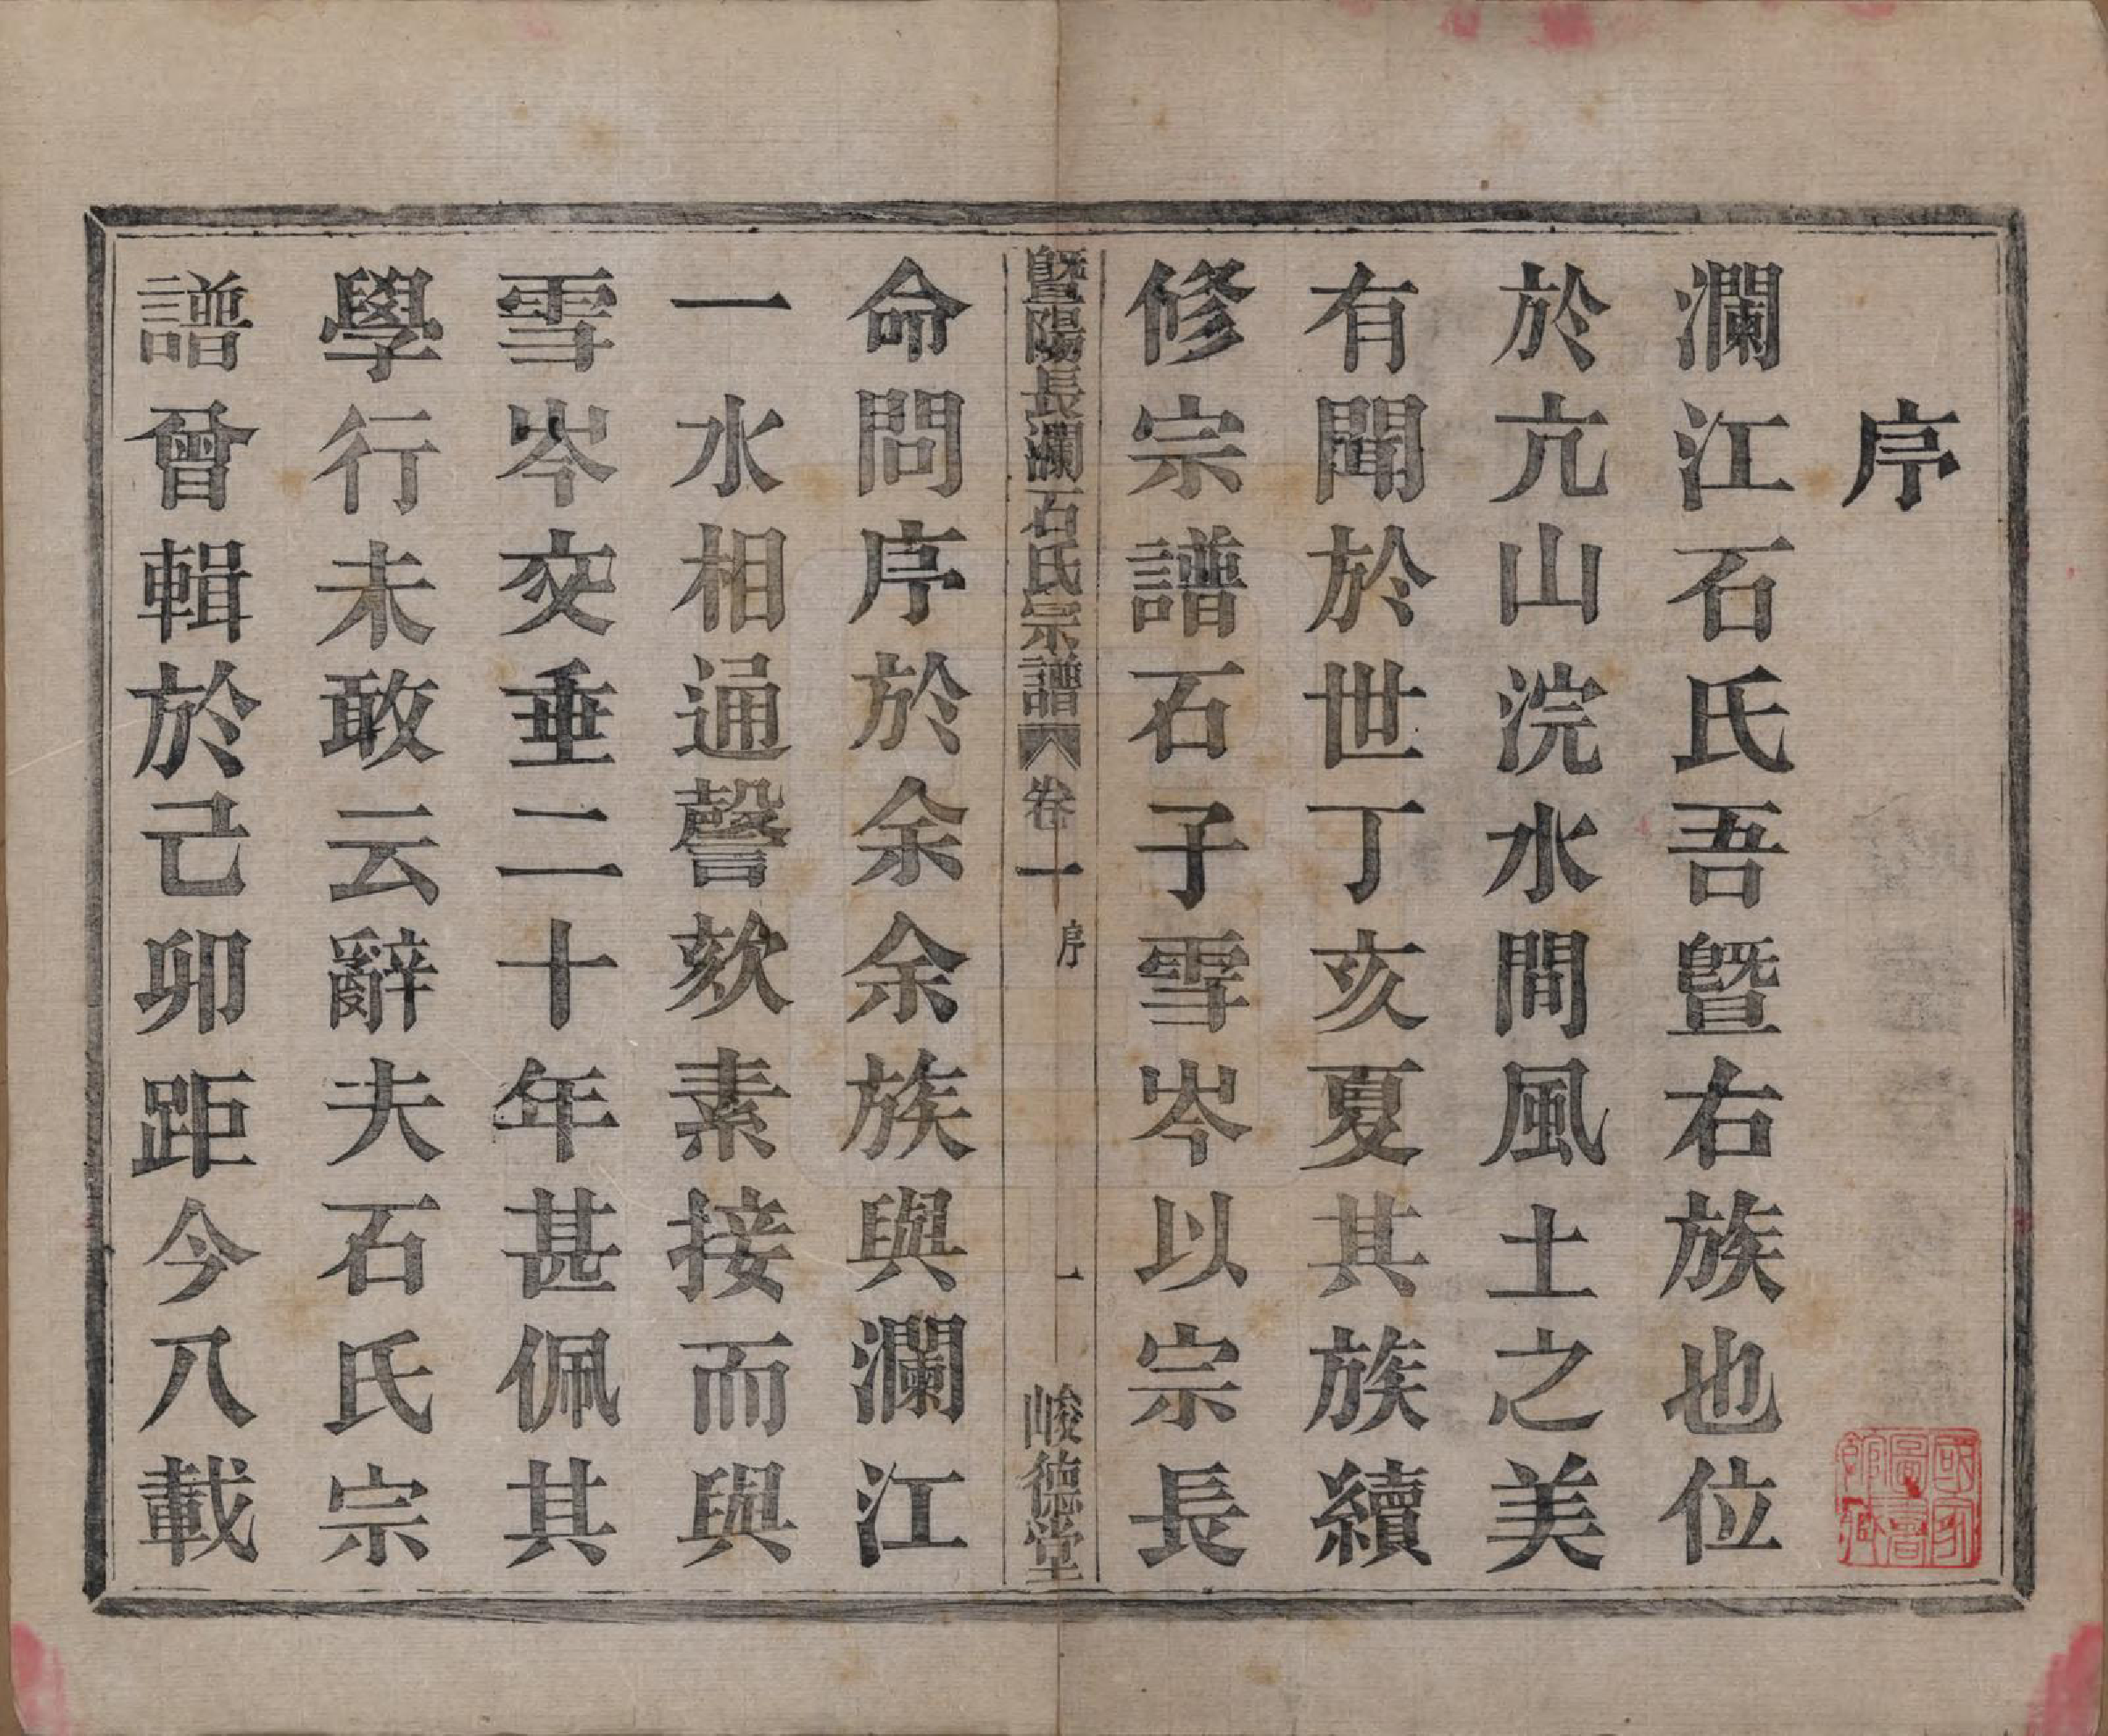 序
瀾江石氏吾暨右族也位
於亢山浣水間風土之美
有聞於世丁亥夏其族續
修宗譜石子雪岑以宗長
暨陽長瀾石氏宗譜
卷一
序
一
峻德堂
命問序於余余族與瀾江
一水相通謦欬素接而與
雪岑交垂二十年甚佩其
學行未敢云辭夫石氏宗
譜曾輯於己卯距今八載
國家圖書館藏